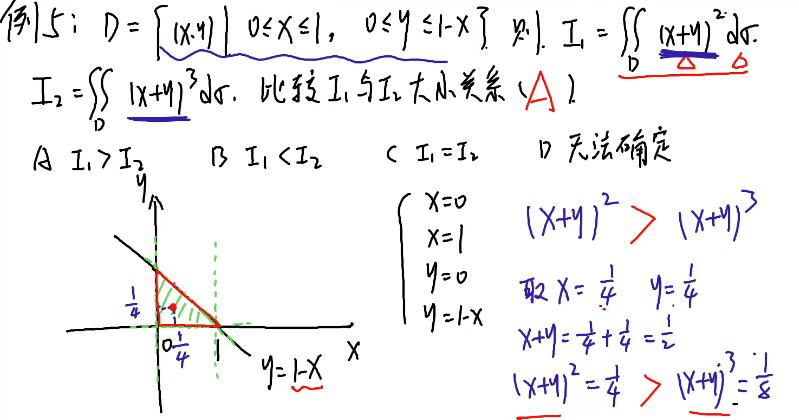 例5: D={(x,y)| 0≤x≤1, 0≤y≤1-x} 则 I₁=∬_D (x+y)²dσ.
I₂=∬_D (x+y)³dσ. 比较I₁与I₂大小关系(A).
A I₁>I₂ B I₁<I₂ C I₁=I₂ D 无法确定
y
1/4
0
1/4
1
x
y=1-x
x=0
x=1
y=0
y=1-x
(x+y)² > (x+y)³
取 x=1/4 y=1/4
x+y=1/4+1/4=1/2
(x+y)²=1/4 > (x+y)³=1/8